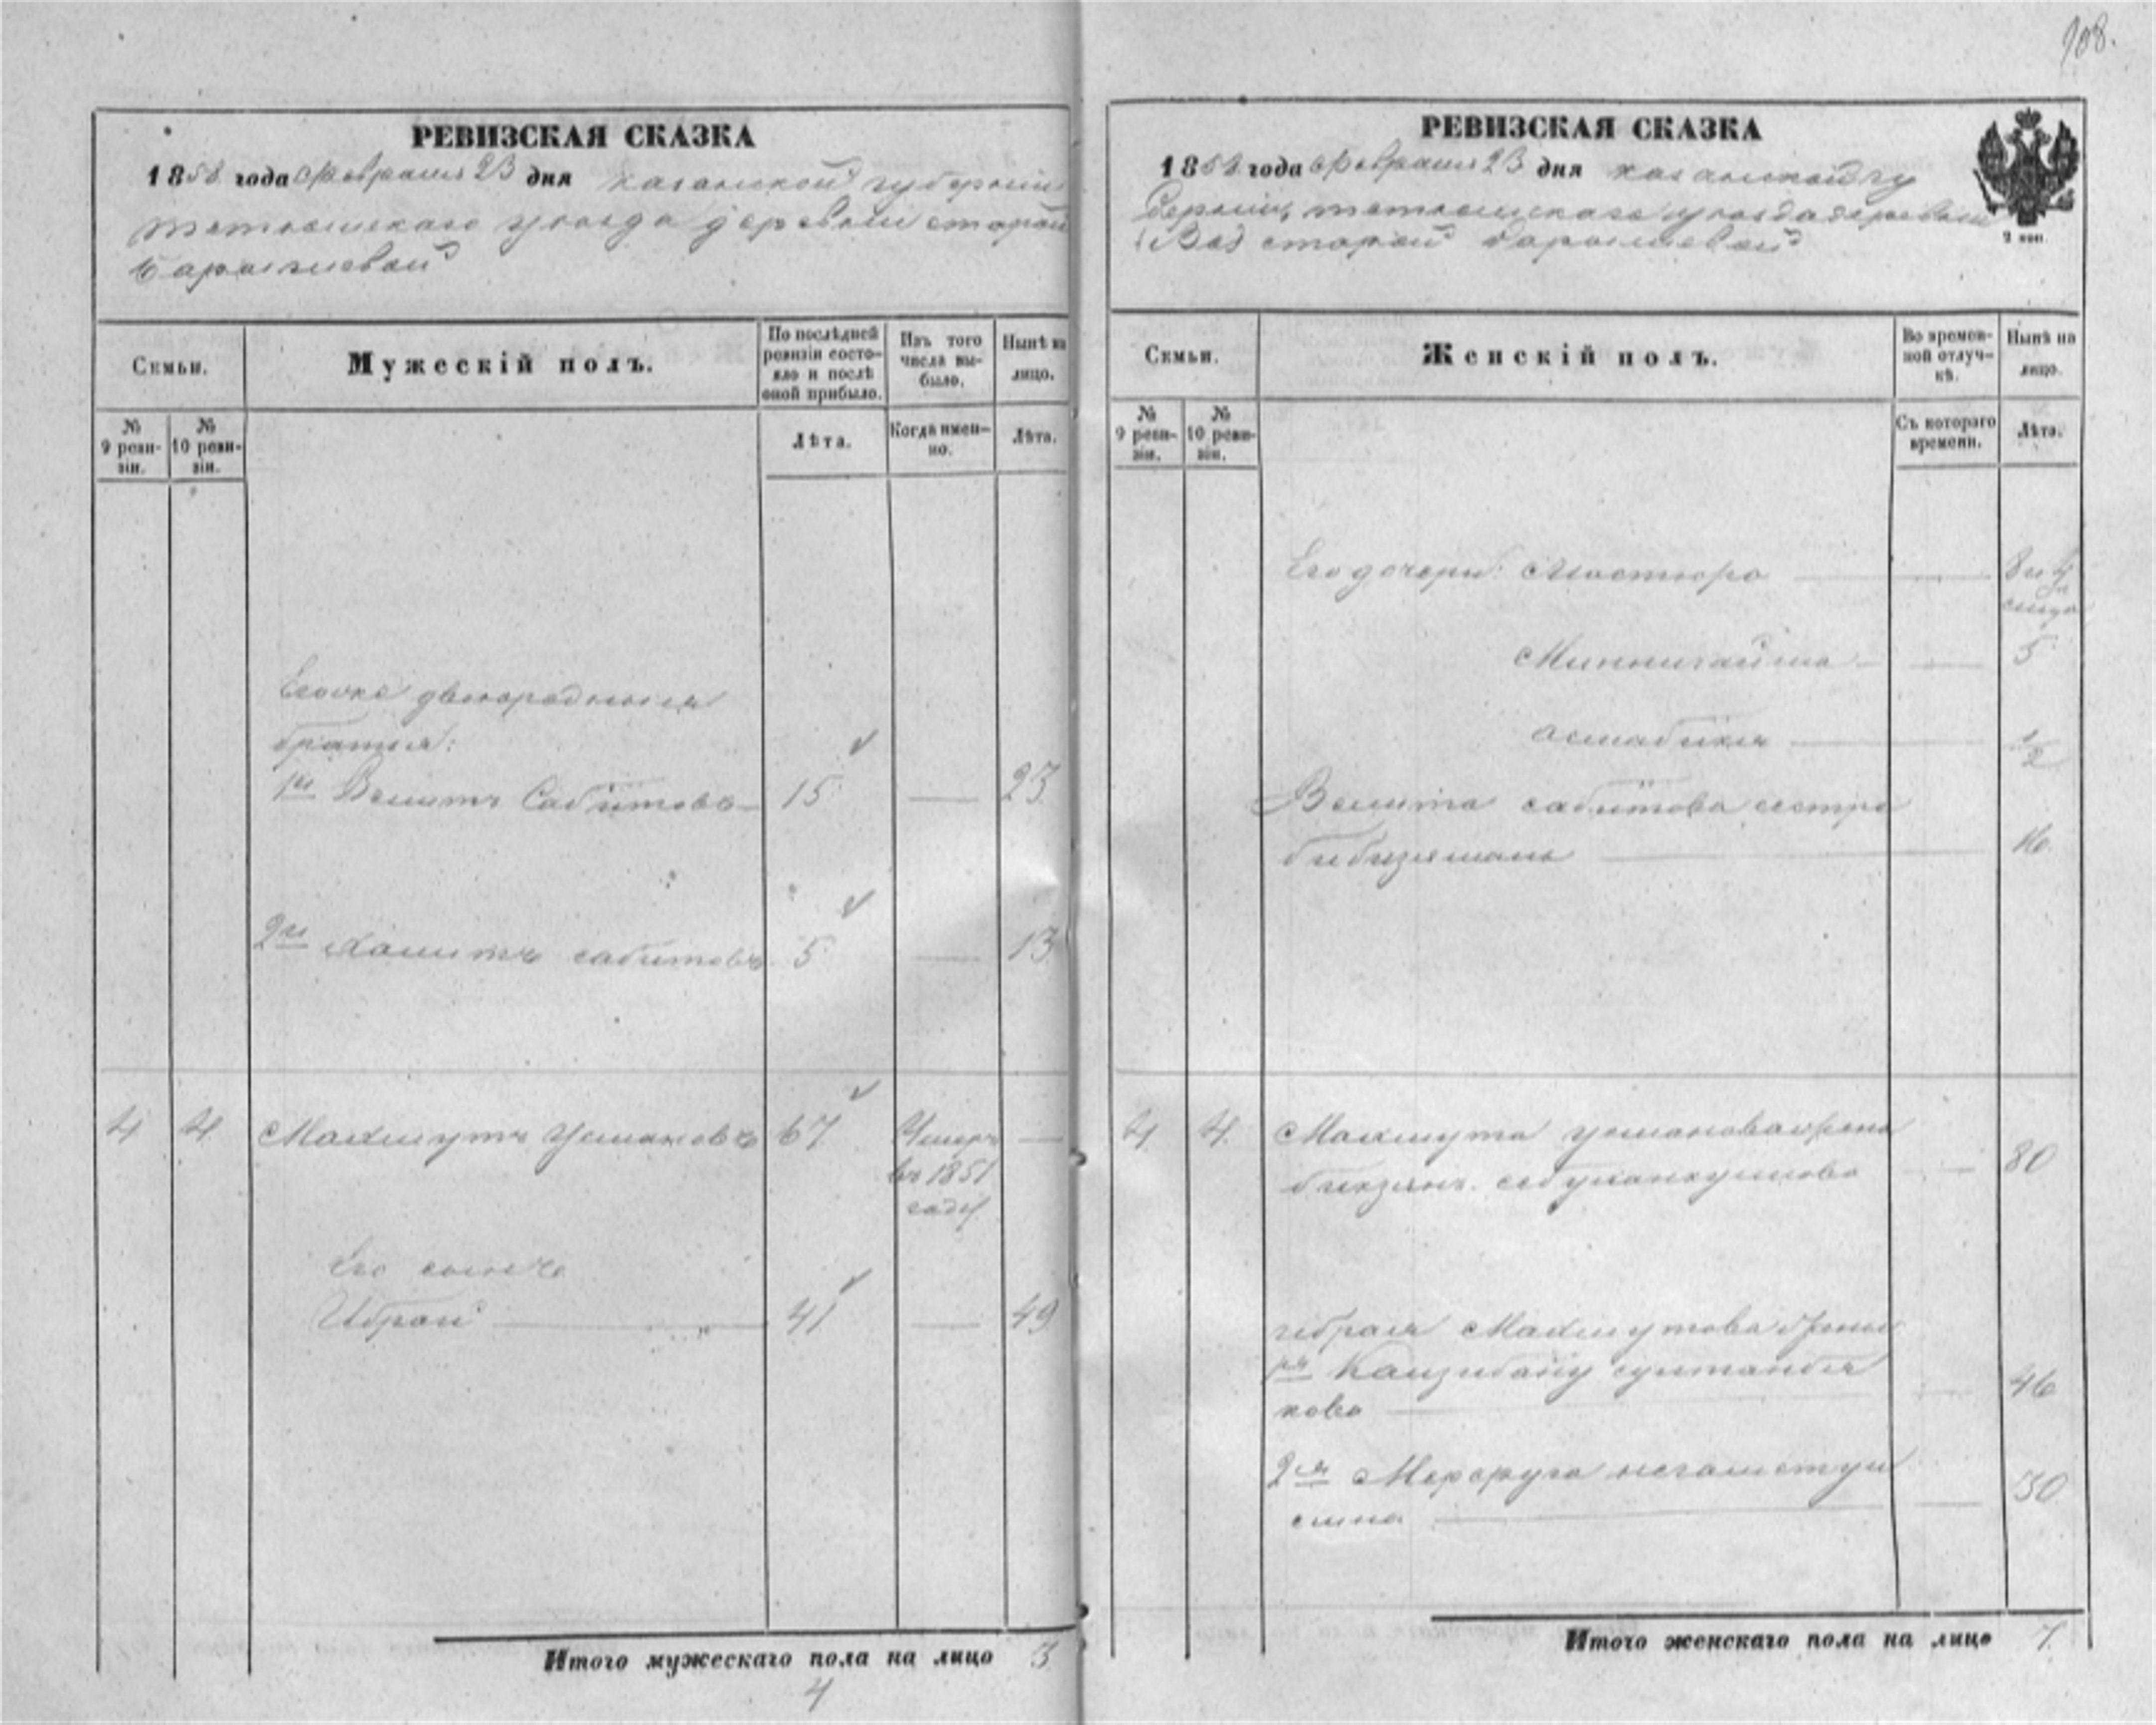 108.
РЕВИЗСКАЯ СКАЗКА
1858 года февраля 23 дня казанской губернии
тетюшскаго уезда деревни старой
Барышевой
Семьи.
Мужескій полъ.
По послѣдней ревизіи состояло и послѣ оной прибыло.
Изъ того числа выбыло.
Нынѣ на лицо.
№ 9 ревизіи.
№ 10 ревизіи.
Лѣта.
Когда именно.
Лѣта.
Егоже двоюродныя
братья:
1й Велитъ Сабитовъ 15 23
2й Хамитъ сабитовъ 5 13
4 4 Махмутъ Усмановъ 67 Умеръ
въ 1851
году
Его сынъ
Ибрай 41 49
Итого мужескаго пола на лицо 3
4
РЕВИЗСКАЯ СКАЗКА
1858 года февраля 23 дня казанской гу
берніи, тетюшскаго уезда деревни
старой барышевой
2 коп.
Семьи.
Женскій полъ.
Во временной отлучкѣ.
Нынѣ на лицо.
№ 9 ревизіи.
№ 10 ревизіи.
Съ котораго времени.
Лѣта.
Его дочери: Мастюра
5
асмабика 1/2
Велита сабитова сестра
16
4 4 Махмута усманова жена
80
ибрая Махмутова жены
1я
кова 46
2я
30
Итого женскаго пола на лицо 7.